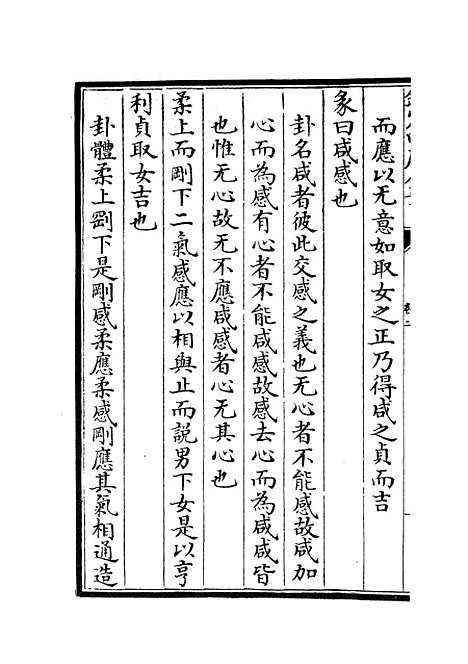 而應以无意如取女之正乃得咸之貞而吉
彖曰咸感也
卦名咸者彼此交感之義也无心者不能感故咸加
心而為感有心者不能咸感故感去心而為咸咸皆
也惟无心故无不應咸感者心无其心也
柔上而剛下二氣感應以相與止而説男下女是以亨
利貞取女吉也
卦體柔上剛下是剛感柔應柔感剛應其氣相通造
卷二